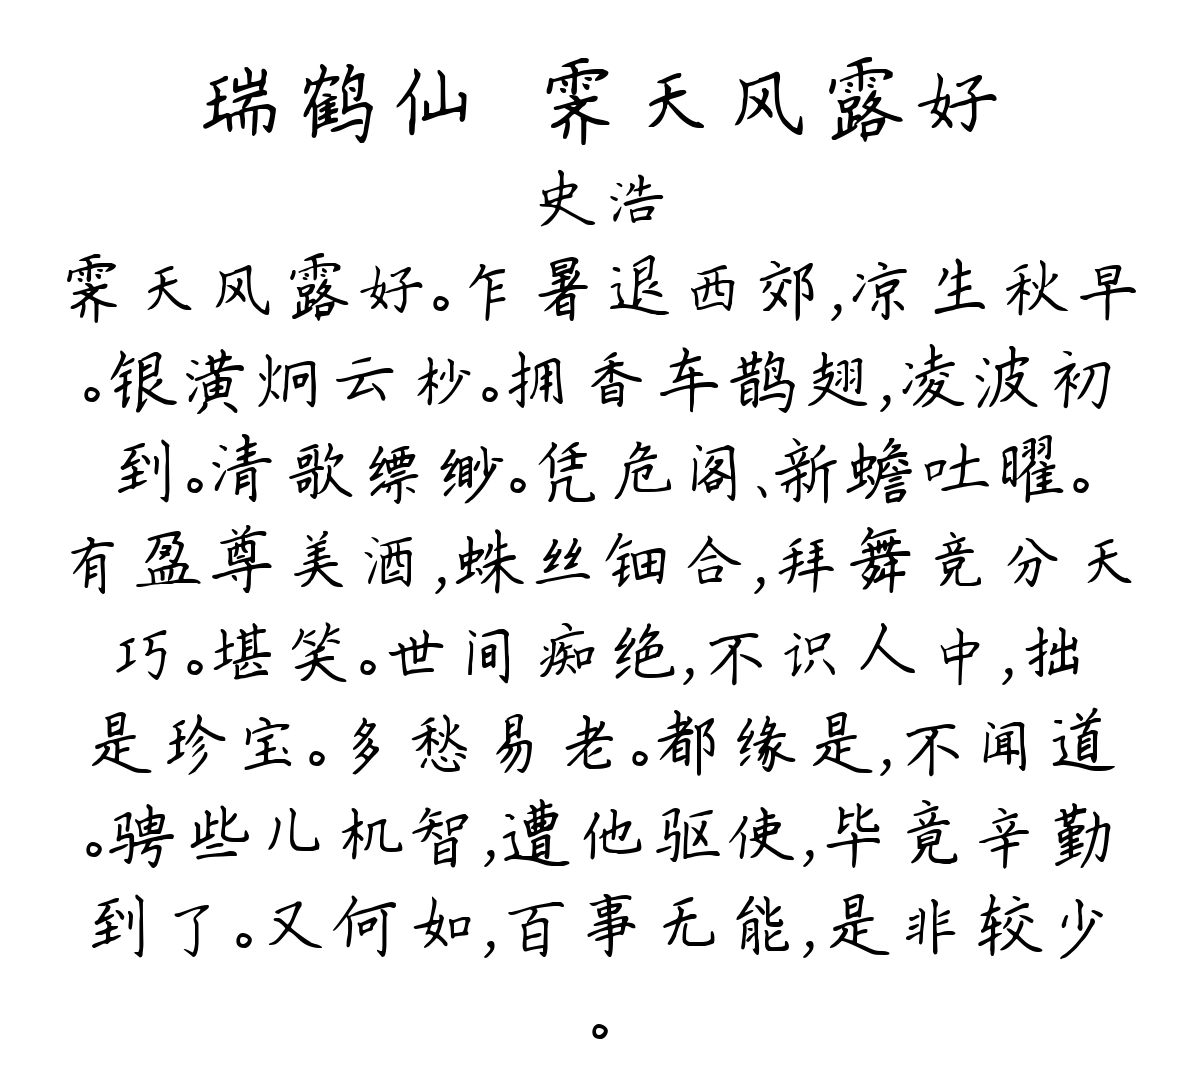 瑞鹤仙 霁天风露好
史浩
霁天风露好。乍暑退西郊,凉生秋早
。银潢炯云杪。拥香车鹊翅,凌波初
到。清歌缥缈。凭危阁、新蟾吐曜。
有盈尊美酒,蛛丝钿合,拜舞竞分天
巧。堪笑。世间痴绝,不识人中,拙
是珍宝。多愁易老。都缘是,不闻道
。骋些儿机智,遭他驱使,毕竟辛勤
到了。又何如,百事无能,是非较少
。